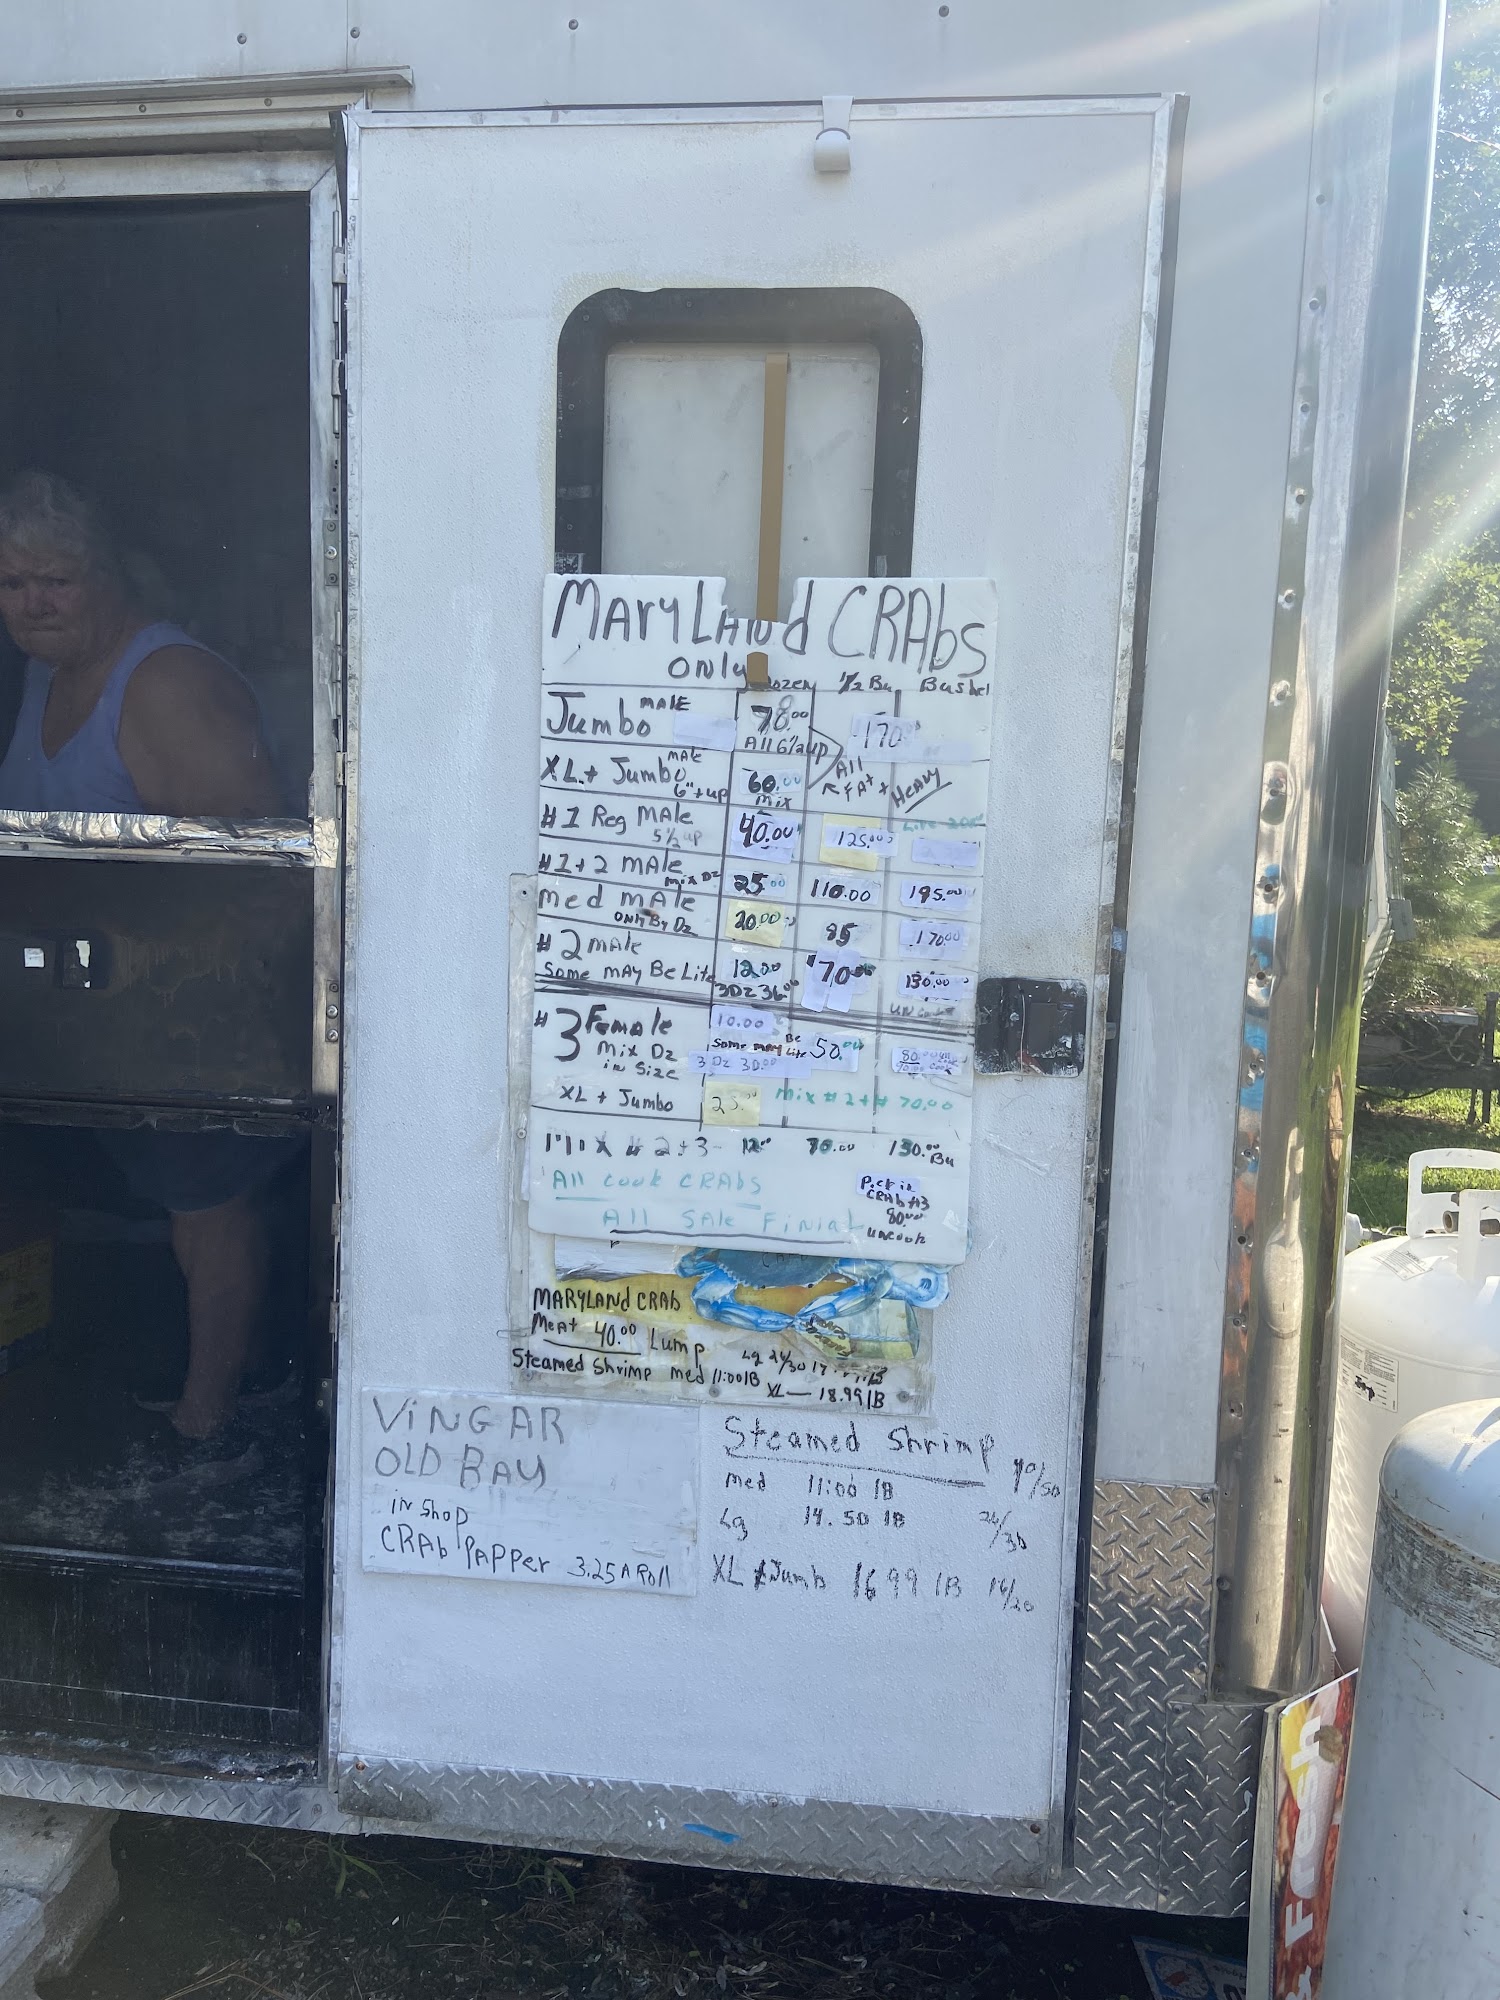 MARYLANd CRAbs
ONLY
1/2 Bu Bushel
Jumbo MALE 78.00 170
All 6 1/2 up
XL + Jumbo MALE 60.00 All FAt + HEAVY
6" + up Mix
#1 Reg MAle 40.00 125.00
5 1/2 up
#1 + 2 MAle 25.00 110.00 195.00
mix Dz
med mAle 20.00 85 170.00
ONly By Dz
#2 male 12.00 70 130.00
Some MAY Be Lite 3Dz 36.00
#3 Female 10.00 50.00 80.00
Mix Dz Some may Be Lite
in Size 3 Dz 30.00
XL + Jumbo 25.00 Mix #2 + # 70.00
Mix # 2 + 3 - 12.00 70.00 130.00 Bu
All cook CRAbs
All SAle FiniAL
Pick in
CRAb #3
80.00
uncook
MARYLANd CRAb
MeAt 40.00 Lump
Steamed Shrimp med 11:00 lB
Lg 26/30
XL — 18.99 lB
ViNGAR
OLD BAY
in Shop
CRAb PAPPer 3.25 A Roll
Steamed Shrimp
med 11:00 lB 40/50
Lg 14.50 lB 26/30
XL + Jumb 16 99 lB 16/20
& Fresh